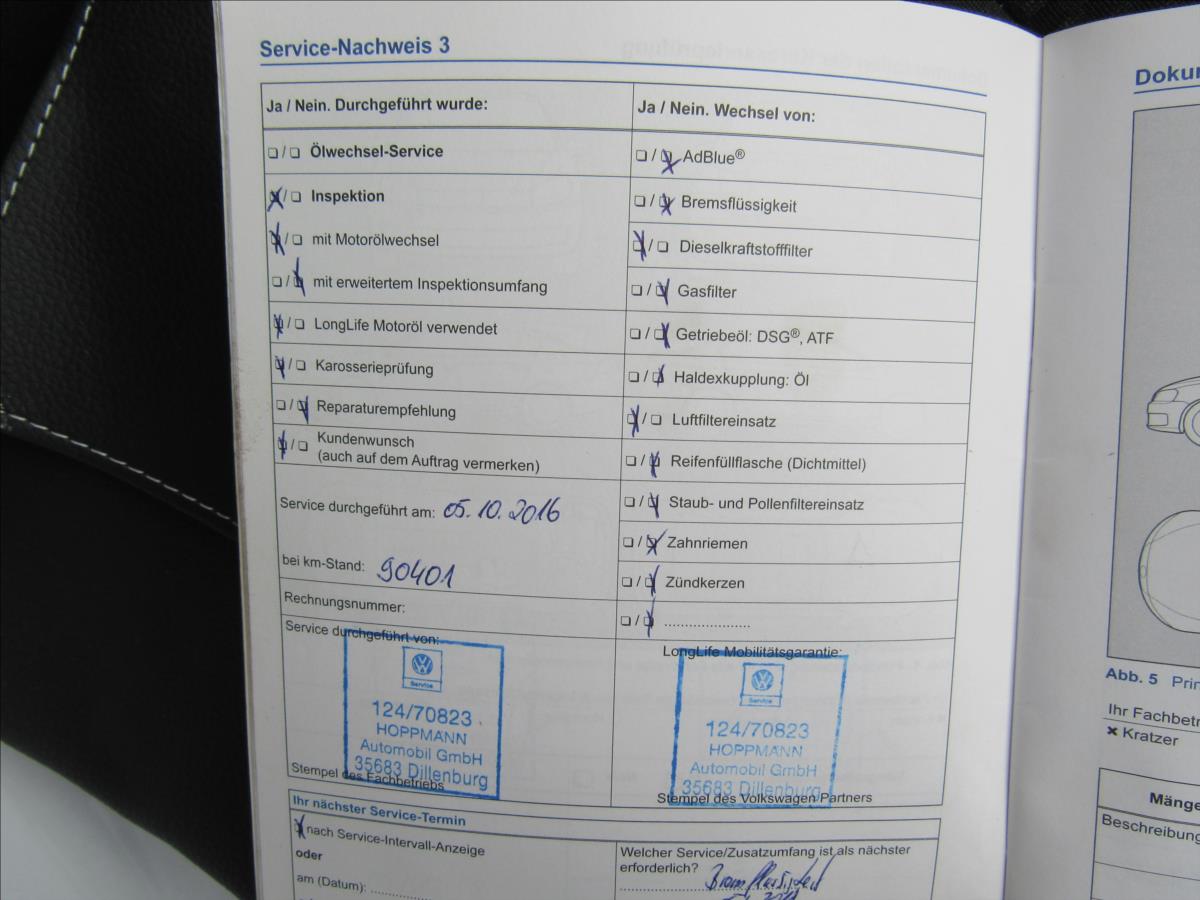 Service-Nachweis 3
Ja / Nein. Durchgeführt wurde:
❑ / ❑ Ölwechsel-Service
❑ / ❑ Inspektion
❑ / ❑ mit Motorölwechsel
❑ / ❑ mit erweitertem Inspektionsumfang
❑ / ❑ LongLife Motoröl verwendet
❑ / ❑ Karosserieprüfung
❑ / ❑ Reparaturempfehlung
❑ / ❑ Kundenwunsch
(auch auf dem Auftrag vermerken)
Service durchgeführt am: 05.10.2016
bei km-Stand: 90401
Rechnungsnummer:
Service durchgeführt von:
Service
124/70823
HOPPMANN
Automobil GmbH
35683 Dillenburg
Stempel des Fachbetriebs
Ja / Nein. Wechsel von:
❑ / ❑ AdBlue®
❑ / ❑ Bremsflüssigkeit
❑ / ❑ Dieselkraftstofffilter
❑ / ❑ Gasfilter
❑ / ❑ Getriebeöl: DSG®, ATF
❑ / ❑ Haldexkupplung: Öl
❑ / ❑ Luftfiltereinsatz
❑ / ❑ Reifenfüllflasche (Dichtmittel)
❑ / ❑ Staub- und Pollenfiltereinsatz
❑ / ❑ Zahnriemen
❑ / ❑ Zündkerzen
❑ / ❑ .....................
LongLife Mobilitätsgarantie:
Service
124/70823
HOPPMANN
Automobil GmbH
35683 Dillenburg
Stempel des Volkswagen Partners
Ihr nächster Service-Termin
nach Service-Intervall-Anzeige
oder
am (Datum):
Welcher Service/Zusatzumfang ist als nächster
erforderlich?
Bremsflüssigkeit
Dokur
Abb. 5 Prin
Ihr Fachbetr
✖ Kratzer
Mänge
Beschreibung